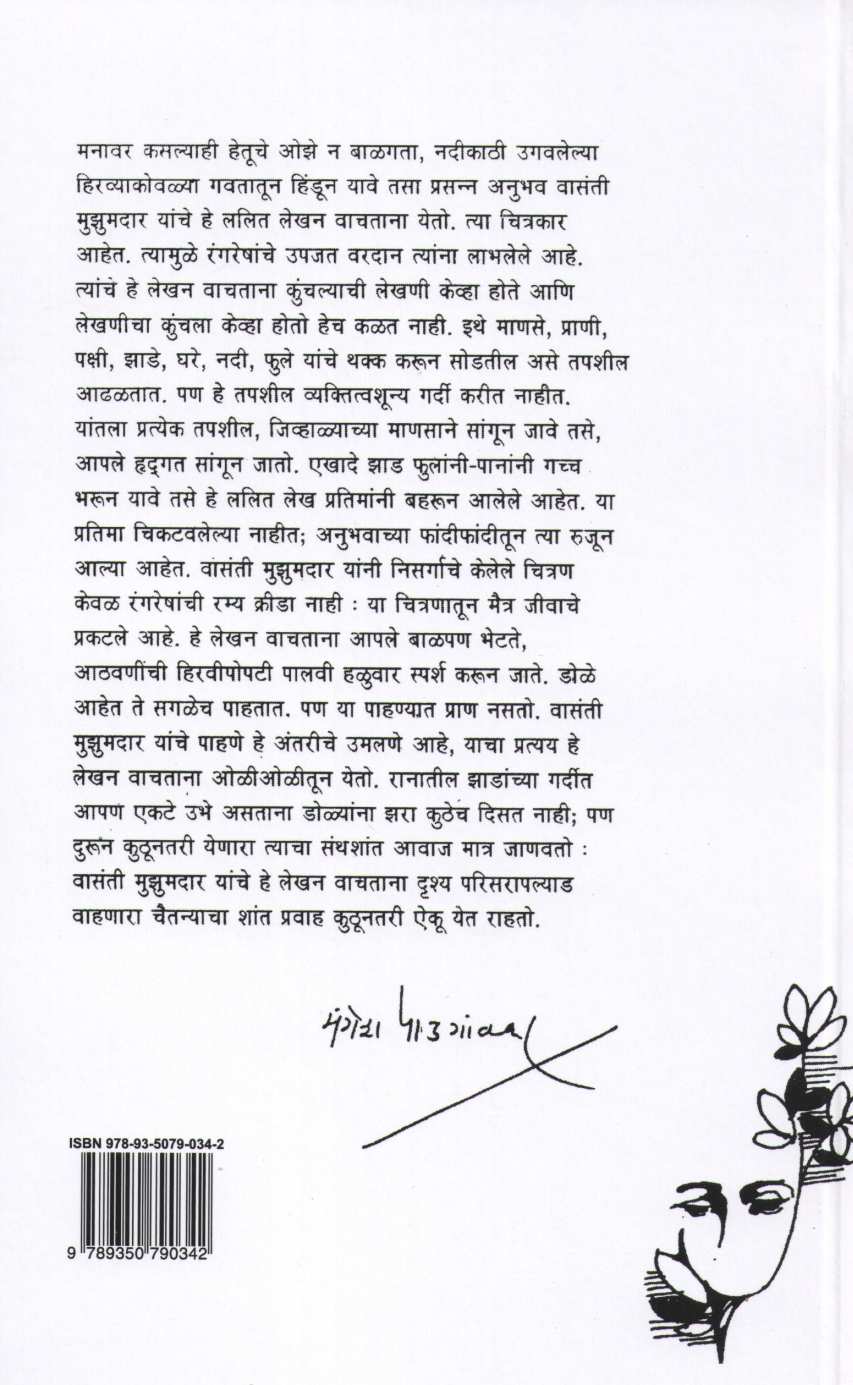 मनावर कसल्याही हेतूचे ओझे न बाळगता, नदीकाठी उगवलेल्या
हिरव्याकोवळ्या गवतातून हिंडून यावे तसा प्रसन्न अनुभव वासंती
मुझुमदार यांचे हे ललित लेखन वाचताना येतो. त्या चित्रकार
आहेत. त्यामुळे रंगरेषांचे उपजत वरदान त्यांना लाभलेले आहे.
त्यांचे हे लेखन वाचताना कुंचल्याची लेखणी केव्हा होते आणि
लेखणीचा कुंचला केव्हा होतो हेच कळत नाही. इथे माणसे, प्राणी,
पक्षी, झाडे, घरे, नदी, फुले यांचे थक्क करून सोडतील असे तपशील
आढळतात. पण हे तपशील व्यक्तित्वशून्य गर्दी करीत नाहीत.
यांतला प्रत्येक तपशील, जिव्हाळ्याच्या माणसाने सांगून जावे तसे,
आपले हृद्‌गत सांगून जातो. एखादे झाड फुलांनी-पानांनी गच्च
भरून यावे तसे हे ललित लेख प्रतिमांनी बहरून आलेले आहेत. या
प्रतिमा चिकटवलेल्या नाहीत; अनुभवाच्या फांदीफांदीतून त्या रुजून
आल्या आहेत. वासंती मुझुमदार यांनी निसर्गाचे केलेले चित्रण
केवळ रंगरेषांची रम्य क्रीडा नाही : या चित्रणातून मैत्र जीवाचे
प्रकटले आहे. हे लेखन वाचताना आपले बाळपण भेटते,
आठवणींची हिरवीपोपटी पालवी हळुवार स्पर्श करून जाते. डोळे
आहेत ते सगळेच पाहतात. पण या पाहण्यात प्राण नसतो. वासंती
मुझुमदार यांचे पाहणे हे अंतरीचे उमलणे आहे, याचा प्रत्यय हे
लेखन वाचताना ओळीओळीतून येतो. रानातील झाडांच्या गर्दीत
आपण एकटे उभे असताना डोळ्यांना झरा कुठेच दिसत नाही; पण
दुरून कुठूनतरी येणारा त्याचा संथशांत आवाज मात्र जाणवतो :
वासंती मुझुमदार यांचे हे लेखन वाचताना दृश्य परिसरापल्याड
वाहणारा चैतन्याचा शांत प्रवाह कुठूनतरी ऐकू येत राहतो.
मंगेश पाडगांवकर
ISBN 978-93-5079-034-2
9 789350 790342